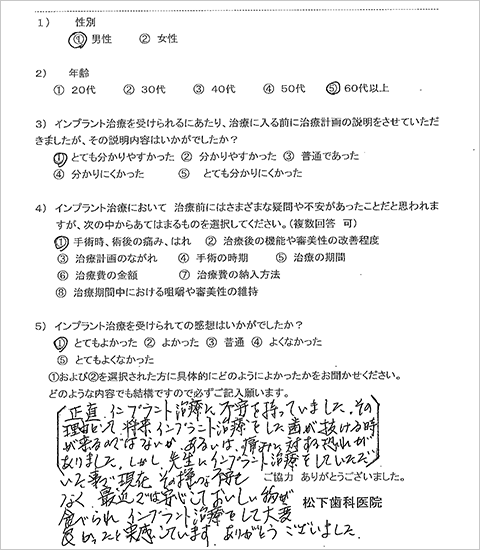 1) 性別
① 男性 ② 女性
2) 年齢
① 20代 ② 30代 ③ 40代 ④ 50代 ⑤ 60代以上
3) インプラント治療を受けられるにあたり、治療に入る前に治療計画の説明をさせていただ
きましたが、その説明内容はいかがでしたか？
① とても分かりやすかった ② 分かりやすかった ③ 普通であった
④ 分かりにくかった ⑤ とても分かりにくかった
4) インプラント治療において 治療前にはさまざまな疑問や不安があったことだと思われま
すが、次の中からあてはまるものを選択してください。（複数回答 可）
① 手術時、術後の痛み、はれ ② 治療後の機能や審美性の改善程度
③ 治療計画のながれ ④ 手術の時期 ⑤ 治療の期間
⑥ 治療費の金額 ⑦ 治療費の納入方法
⑧ 治療期間中における咀嚼や審美性の維持
5) インプラント治療を受けられての感想はいかがでしたか？
① とてもよかった ② よかった ③ 普通 ④ よくなかった
⑤ とてもよくなかった
①および②を選択された方に具体的にどのようによかったかをお聞かせください。
どのような内容でも結構ですので必ずご記入願います。
正直 インプラント治療に不安を持っていました。その
理由として将来 インプラント治療をした歯が抜ける時
が来るのではないか、あるいは、痛みに対する恐れが
ありました。しかし、先生にインプラント治療をしていただ
いた事で現在 その様な
ご協力 ありがとうございました。
なく、最近では家にておいしい物が
松下歯科医院
食べられ インプラント治療をして大変
良かったと実感しています。ありがとうございました。